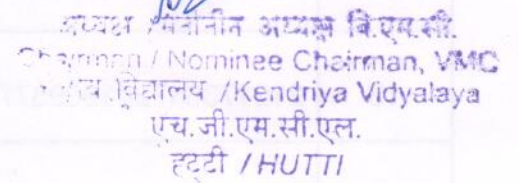 अध्यक्ष / मनोनीत अध्यक्ष वि.एम.सी.
Chairman / Nominee Chairman, VMC
विद्यालय /Kendriya Vidyalaya
एच.जी.एम.सी.एल.
हट्टी / HUTTI